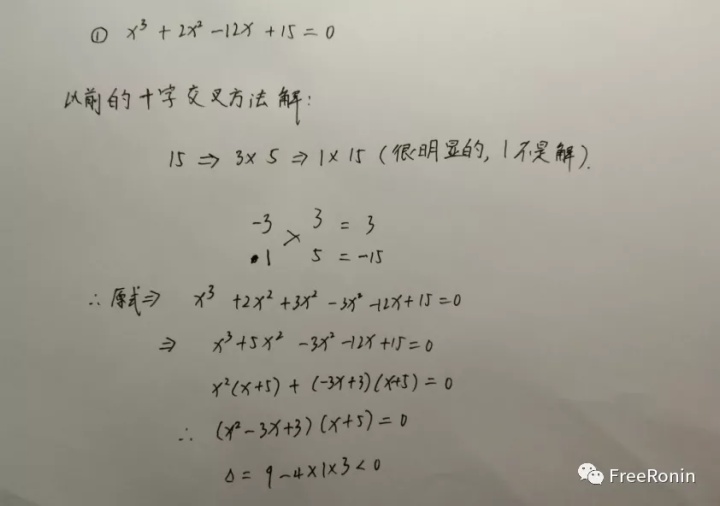 ① x³ + 2x² - 12x + 15 = 0
以前的十字交叉方法解:
15 ⇒ 3×5 ⇒ 1×15 (很明显的, 1不是解).
-3 × 3 = 3
·1 5 = -15
∴ 原式⇒ x³ + 2x² + 3x² - 3x² - 12x + 15 = 0
⇒ x³ + 5x² - 3x² - 12x + 15 = 0
x²(x+5) + (-3x+3)(x+5) = 0
∴ (x² - 3x + 3)(x+5) = 0
Δ = 9 - 4×1×3 < 0
FreeRonin